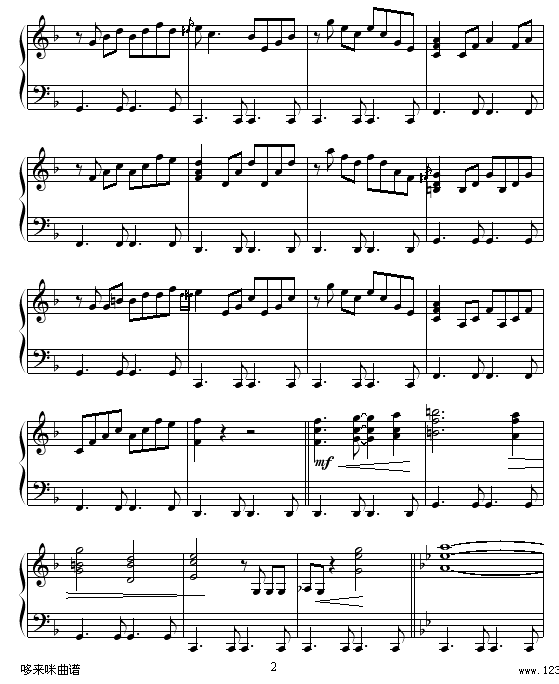 mf
哆来咪曲谱
2
www.123